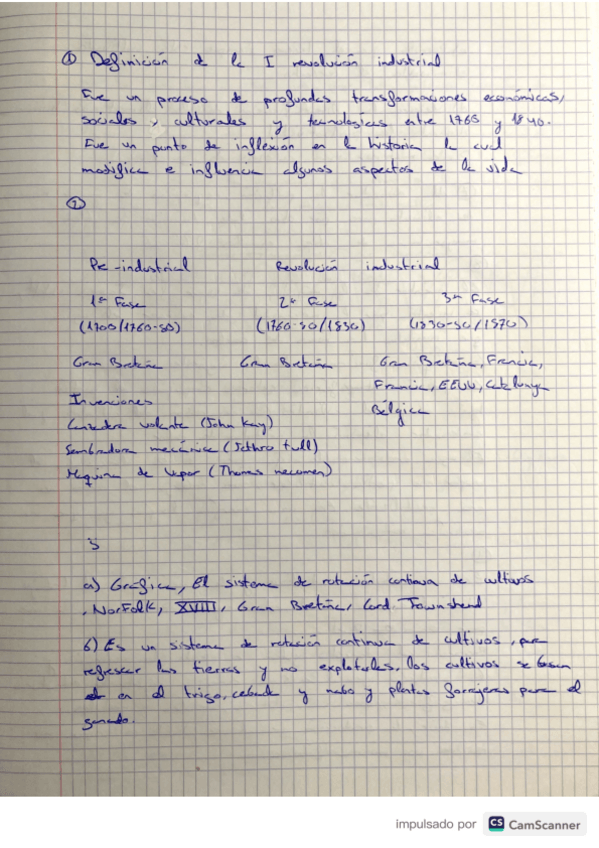 ① Definición de la I revolución industrial
Fue un proceso de profundas transformaciones económicas,
sociales, culturales y tecnologicas entre 1760 y 1840.
Fue un punto de inflexión en la historia la cual
modifica e influencia algunos aspectos de la vida
②
Pre-industrial Revolución industrial
1ª Fase 2ª Fase 3ª Fase
(1700/1760-80) (1760-80/1830) (1830-50/1870)
Gran Bretaña Gran Bretaña Gran Bretaña, Francia,
Francia, EEUU, Catalunya
Invenciones Bélgica
Lanzadera volante (John Kay)
Sembradora mecánica (Jethro tull)
Maquina de vapor (Thomas necomen)
3
a) Gráfica, El sistema de rotación continua de cultivos
, Norfolk, XVIII, Gran Bretaña, Lord Townshend
b) Es un sistema de rotación continua de cultivos, para
refrescar las tierras y no explotarlas. los cultivos se basan
en el trigo, cebada y nabo y plantas forrajeras para el
ganado.
impulsado por CS CamScanner